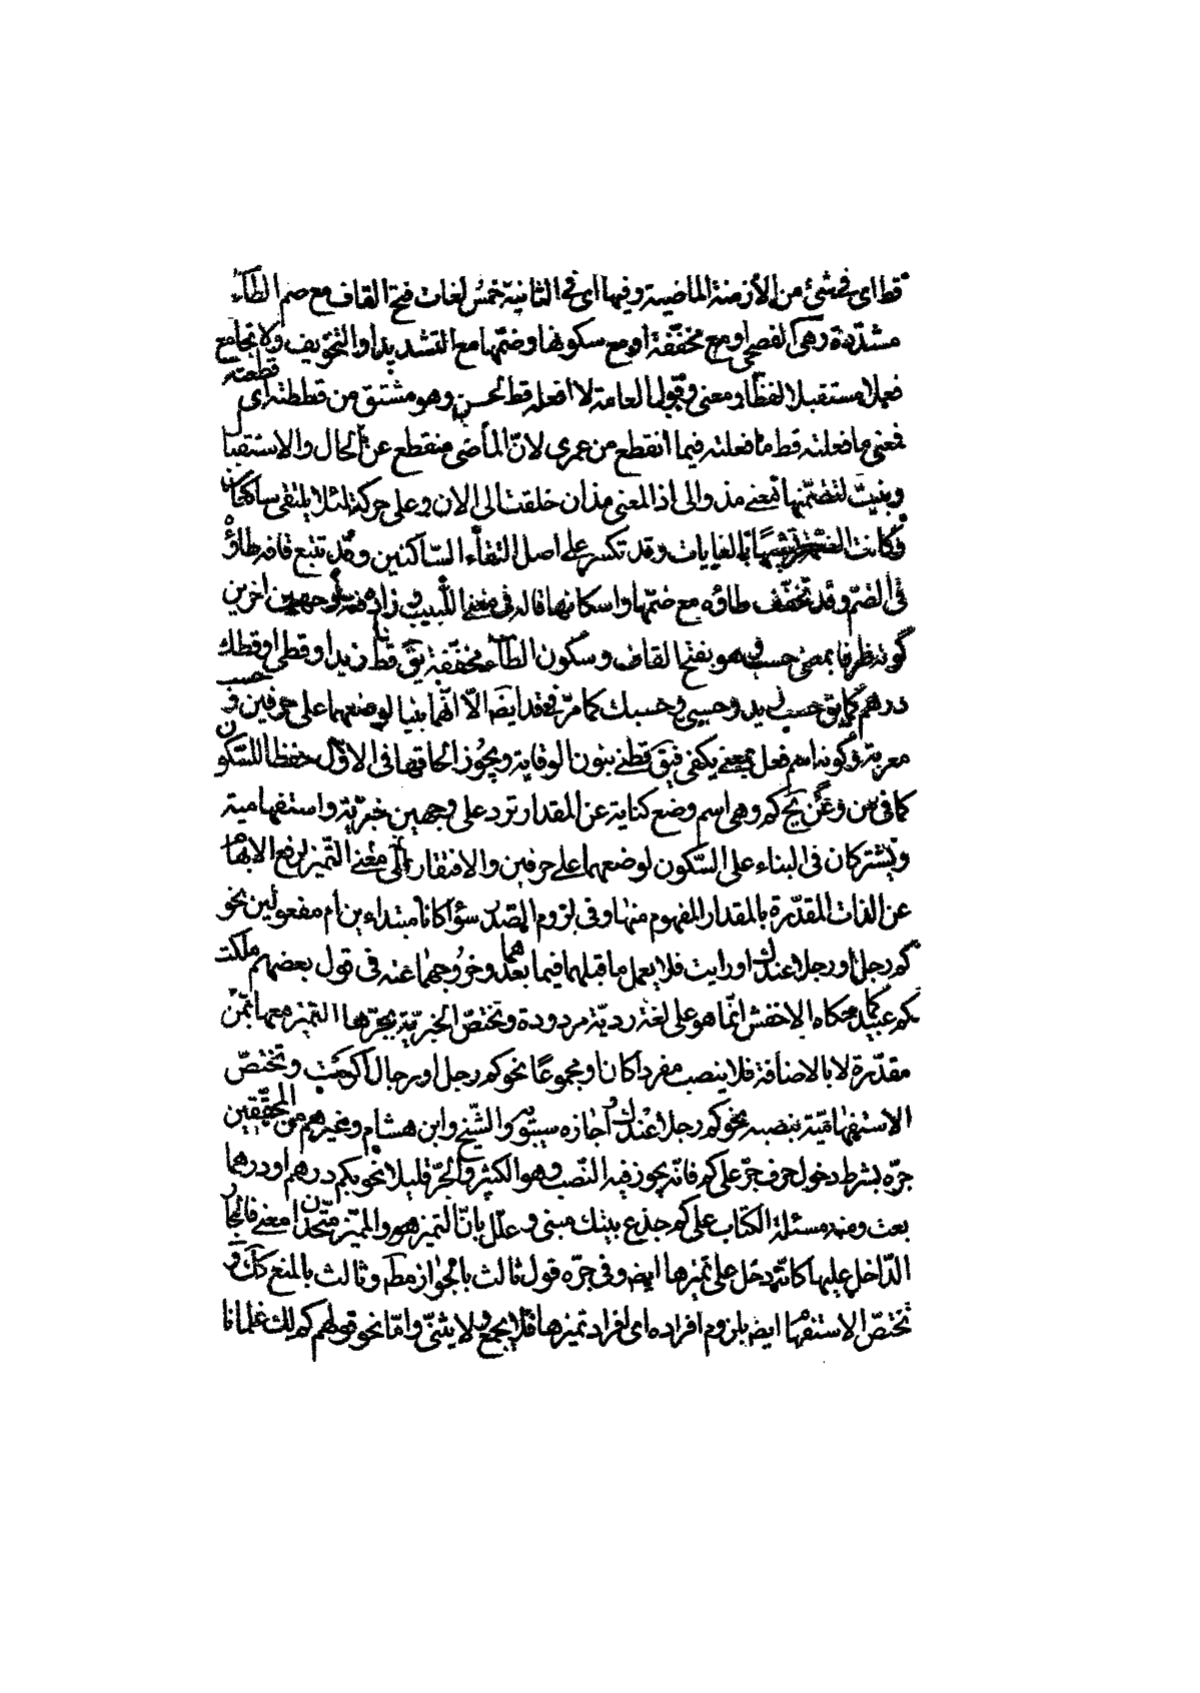 قط اى فى شئ من الأزمنة الماضية وفيها اى فى الثانية خمس لغات فتح القاف مع ضم الطاء
مشدّدة وهى الفصحى او مع مخفّفة او مع سكونها وضمّها مع التشديد او التخفيف ولا تجامع
فعلا مستقبلا لفظا ومعنى وقول العامة لا افعله قط لحن وهو مشتق من قططته اى قطعته
فمعنى ما فعلته قط ما فعلته فيما انقطع من عمرى لانّ الماضى منقطع عن الحال والاستقبال
وبنيت لتضمّنها معنى مذ والى اذ المعنى مذ ان خلقت الى الان وعلى حركة لئلا يلتقى ساكنان
وكانت الضمّة تشبيها بالغايات وقد تكسر على اصل التقاء السّاكنين وقد تتبع قافه طاؤه
فى الضمّ وقد تخفّف طاؤه مع ضمّها واسكانها قاله فى مغنى اللّبيب وزاد وجهين اخرين
كونه ظرفا بمعنى حسب وهو بفتح القاف وسكون الطاء مخفّفة يق قط زيدا وقطى وقطك
درهم كما يق حسب زيد وحسبى وحسبك كما مرّ فى قد ايضا الّا انّهما بنيا لوضعهما على حرفين وحسب
معربة وكونه اسم فعل بمعنى يكفى فيق قطنى بنون الوقاية ويجوز الحاقها فى الاوّل حفظا للسّكون
كما فى من وعن كم وهى اسم وضع كناية عن المقدار ترد على وجهين خبريّة واستفهامية
وتشتركان فى البناء على السّكون لوضعهما على حرفين والافتقار الى معنى التّميز لرفع الابهام
عن الذات المقدّرة بالمقدار المفهوم منها وفى لزوم الصّدر سواء كانا مبتداءين ام مفعولين نحو
كم رجل او رجلا عندك او رايت فلا يعمل ما قبلهما فيما بعدهما وخروجهما عنه فى قول بعضهم ملكت
كم عبيد كما حكاه الاخفش انّما هو على لغة رديّة مردودة وتختصّ الخبريّة بجرّها التميز معها بمن
مقدّرة لا بالاضافة فلا ينصب مفردا كان او مجموعًا نحو كم رجل او رجال اكرمت وتختصّ
الاستفهاميّة بنصبه نحو كم رجلا عندك واجازه سيبويه والشّيخ وابن هشام وغيرهم من المحقّقين
جرّه بشرط دخول حرف جرّ على كم فانّه يجوز فيه النّصب وهو الكثير والجرّ قليلا نحو بكم درهم او درهما
بعت ومنه مسئلة الكتاب على كم جذع بيتك مبنى وعلّل بانّ التميز هو والمميّز متّحدان معنى فالجارّ
الدّاخل عليها كانّه دخل على تميزها ايض وفى جرّه قول ثالث بالجواز مط وثالث بالمنع كك و
تختصّ الاستفها ايض بلزوم افراده اى افراد تميزها فلا يجمع ولا يثنّى وامّا نحو قولهم كم لك غلمانا